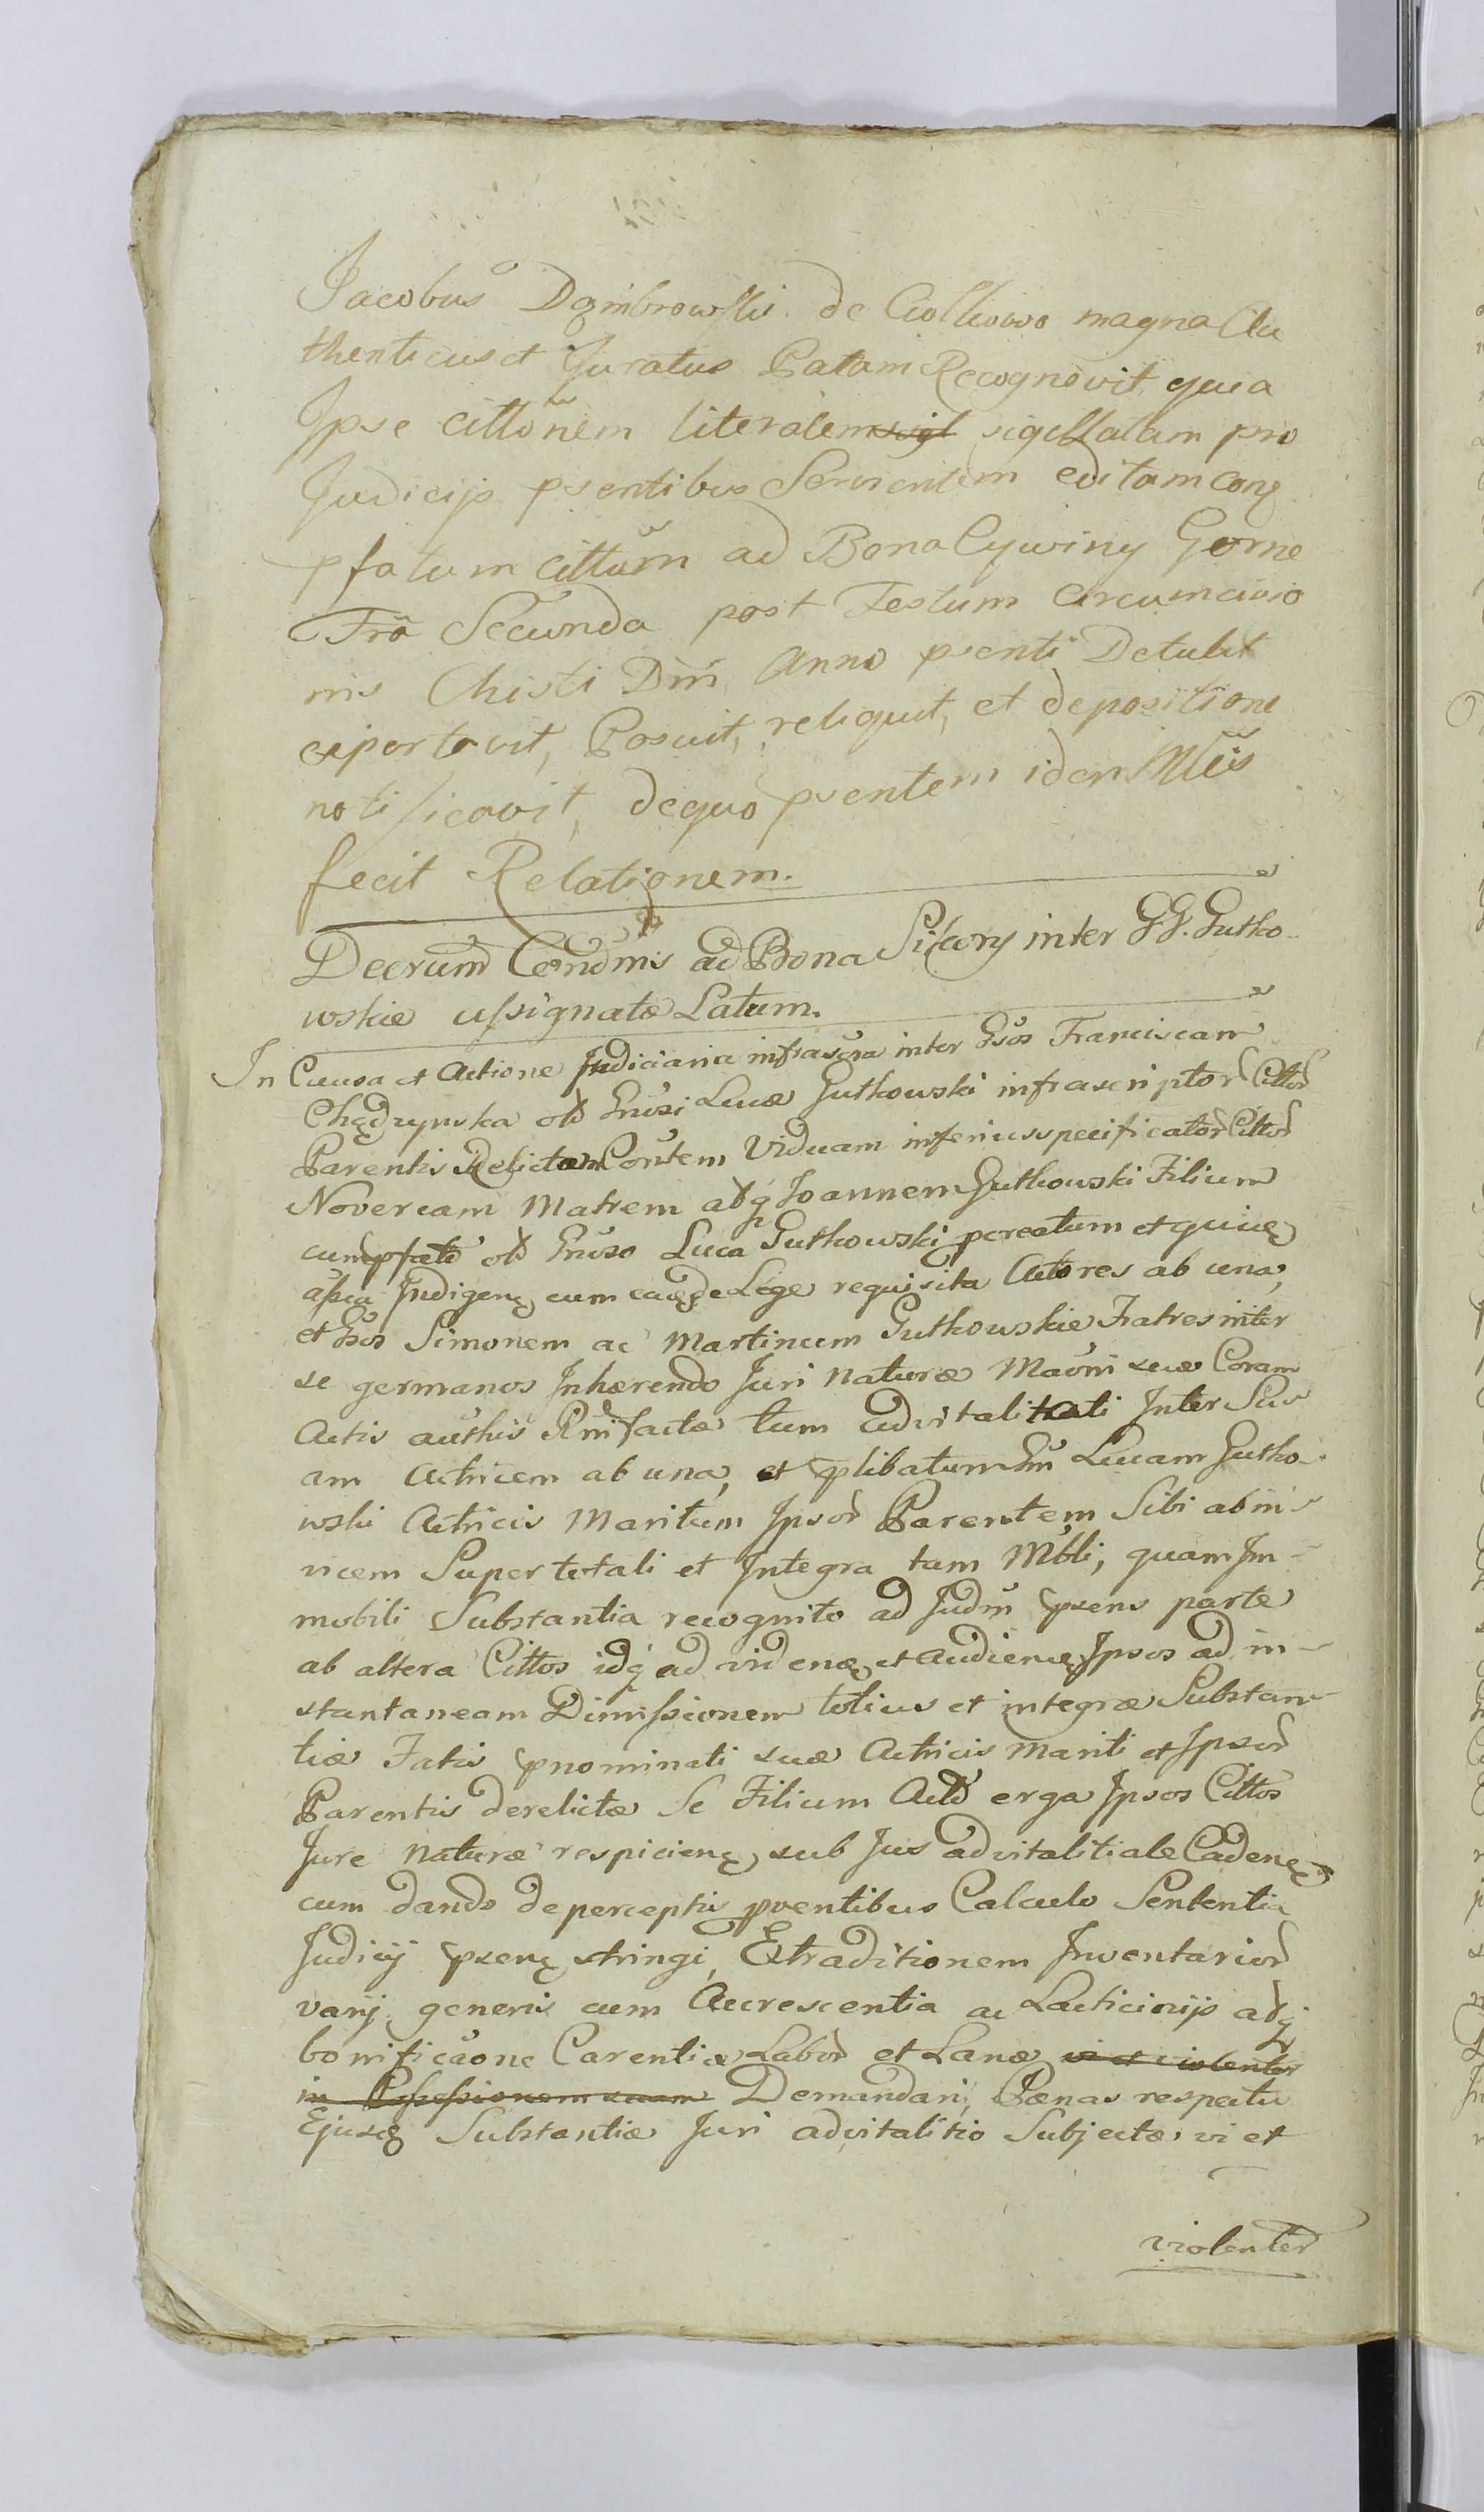 Jacobus Dąmbrowski de Ciołkowo magna Au
thenticus et Juratus Palam Recognovit quia
Ipse Cittõnem literalem sigl sigillatam pro
Judicijs psentibus Servientem editam conq
pfatum Cittũm ad Bona Cywiny Gorne
Frã Secunda post Festum Circumcisio
nis Christi Dni Anno psenti Detulit
exportavit, Posuit, reliquit, et depositione
notificavit, dequo psentem idem Mlis
fecit Relationem.
Decrum Condmis ad Bona Sikory inter GG. Gutko
wskie assignatæ Latum.
In Causa et Actione Judiciaria infrascra inter Gsos Franciscam
Chądzynska olt Gnrosi Lucæ Gutkowski infrascriptor Cittor
Parentis Relictam Contem Viduam inferius specificator Cittor
Novercam Matrem atq Joannem Gutkowski Filium
cum pfato olt Gnroso Luca Gutkowski pcreatum et quivę
assia Indigenę cum eaę de Lege requisita Actores ab una,
et Gsos Simonem ac Martinum Gutkowskie Fratres inter
se germanos Inhærendo Juri Naturæ Maoni suæ Coram
Actis authis Rni factæ tum advitalitati Inter Su
am Actricem ab una, et plibatum Gm Lucam Gutko
wski Actricis Maritum Ipsor Parentem Sibi abin
vicem Super totali et Integra tam Mbli, quam Im
mobili Substantia recognito ad Judm psens parte
ab altera Cittos idq ad videnę et audienę Ipsos ad in
stantaneam Dimissionem totius et integræ Substan
tiæ Fatis pnominati suæ Actricis Mariti et Ipsor
Parentis derelictæ Se Filium Actor erga Ipsos Cittos
Jure Naturæ respicienę sub Jus advitalitiale Cadenę
cum dando de perceptis pventibus Calculo Sententia
Judicij psenę stringi, Extraditionem Inventarior
varij generis cum Accrescentia ac Lacticinijs atq
bonificãone Carentiæ Labor et Lanæ vi et violenter
in Possessionem suam Demandari, Pænas respectu
Ejusdę Substantiæ Juri advitalitio Subjectæ vi et
violenter